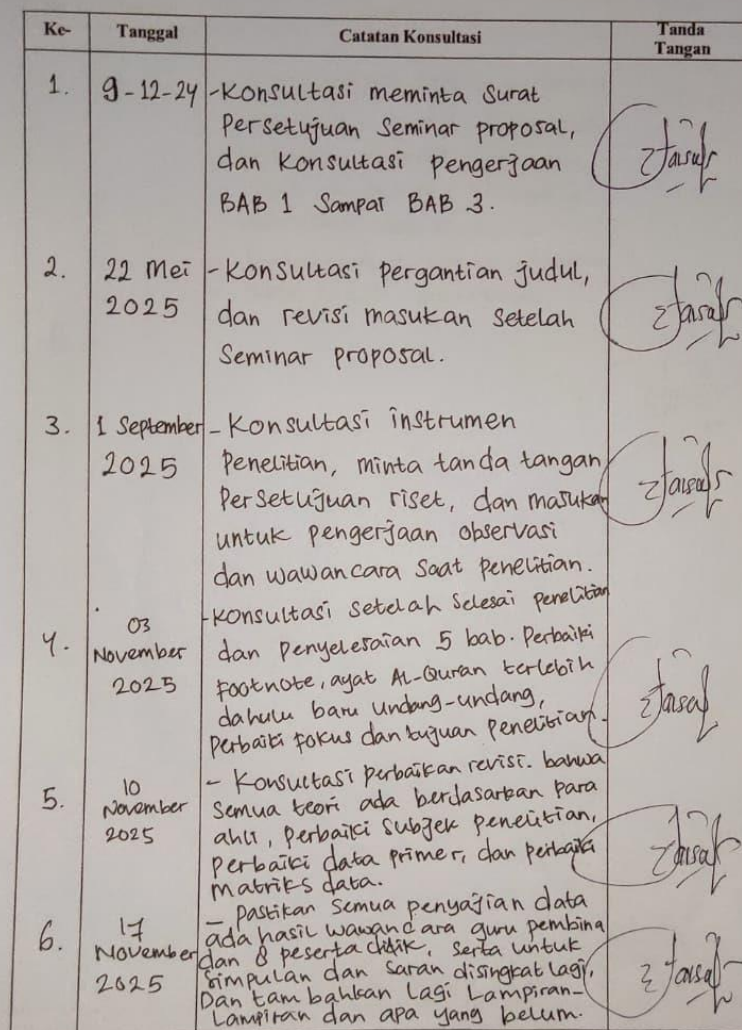 Ke- Tanggal Catatan Konsultasi Tanda Tangan
1. 9-12-24 -Konsultasi meminta Surat
Persetujuan Seminar proposal,
dan Konsultasi pengerjaan
BAB 1 Sampai BAB 3.
2. 22 Mei -Konsultasi pergantian judul,
2025 dan revisi masukan Setelah
Seminar proposal.
3. 1 September -Konsultasi instrumen
2025 Penelitian, minta tanda tangan
Persetujuan riset, dan masukan
untuk pengerjaan observasi
dan wawancara Saat penelitian.
-Konsultasi setelah Selesai penelitian
4. 03 November 2025 dan Penyelesaian 5 bab. Perbaiki
Footnote, ayat Al-Quran terlebih
dahulu baru undang-undang,
Perbaiki Fokus dan tujuan Penelitian.
5. 10 November 2025 - Konsultasi perbaikan revisi. bahwa
Semua teori ada berdasarkan para
ahli, Perbaiki Subjek penelitian,
Perbaiki data primer, dan perbaiki
matriks data.
- pastikan Semua penyajian data
6. 17 November 2025 ada hasil wawancara guru pembina
dan 8 peserta didik, serta untuk
simpulan dan Saran disingkat lagi,
Dan tambahkan Lagi Lampiran-
Lampiran dan apa yang belum.